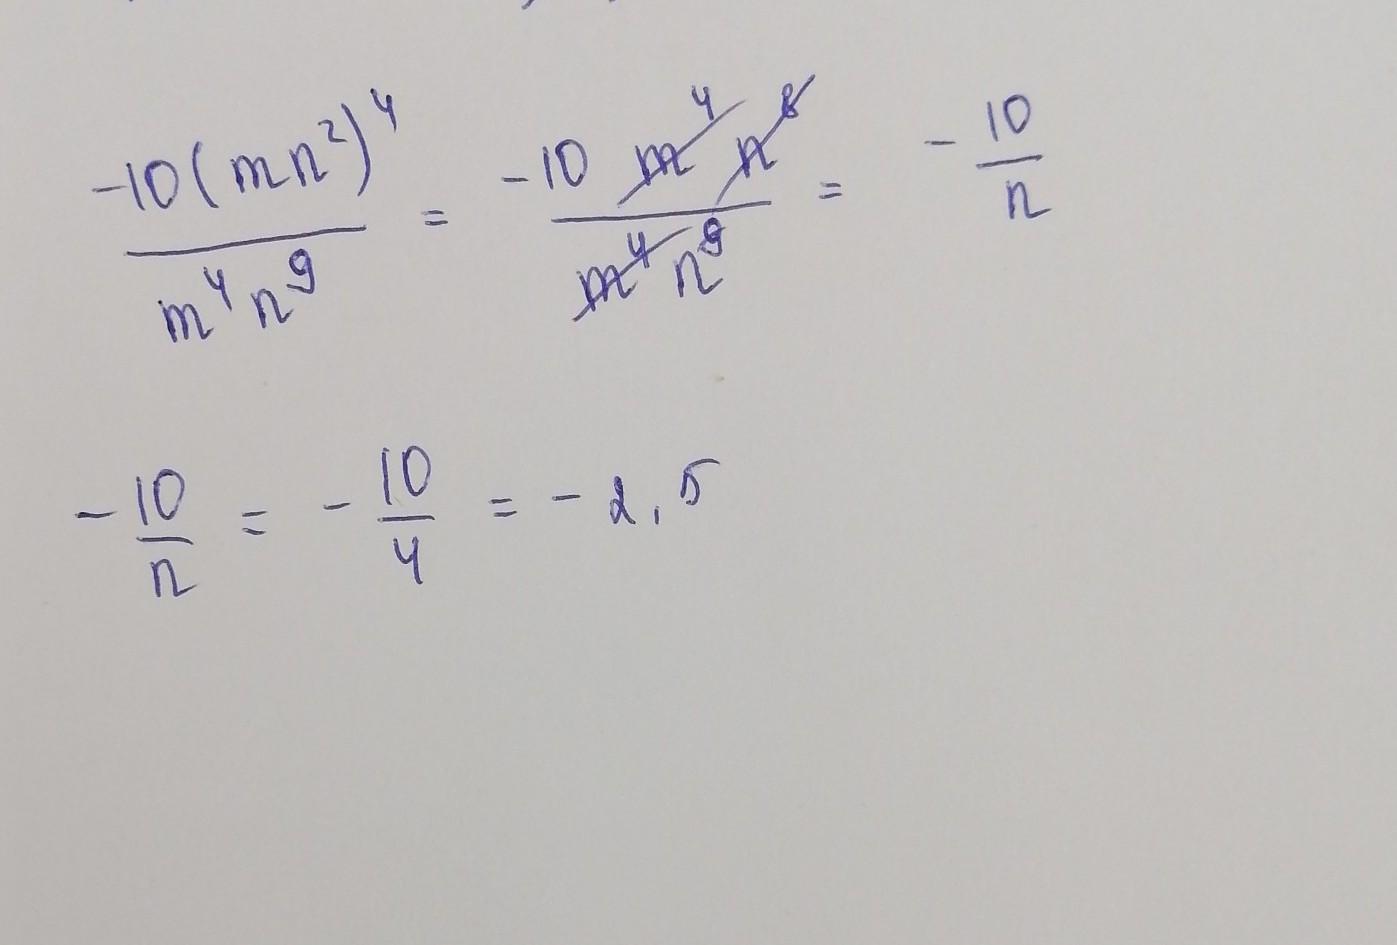 -10(mn²)⁴/m⁴n⁹ = -10 m⁴ n⁸/m⁴ n⁹ = - 10/n
- 10/n = - 10/4 = - 2,5